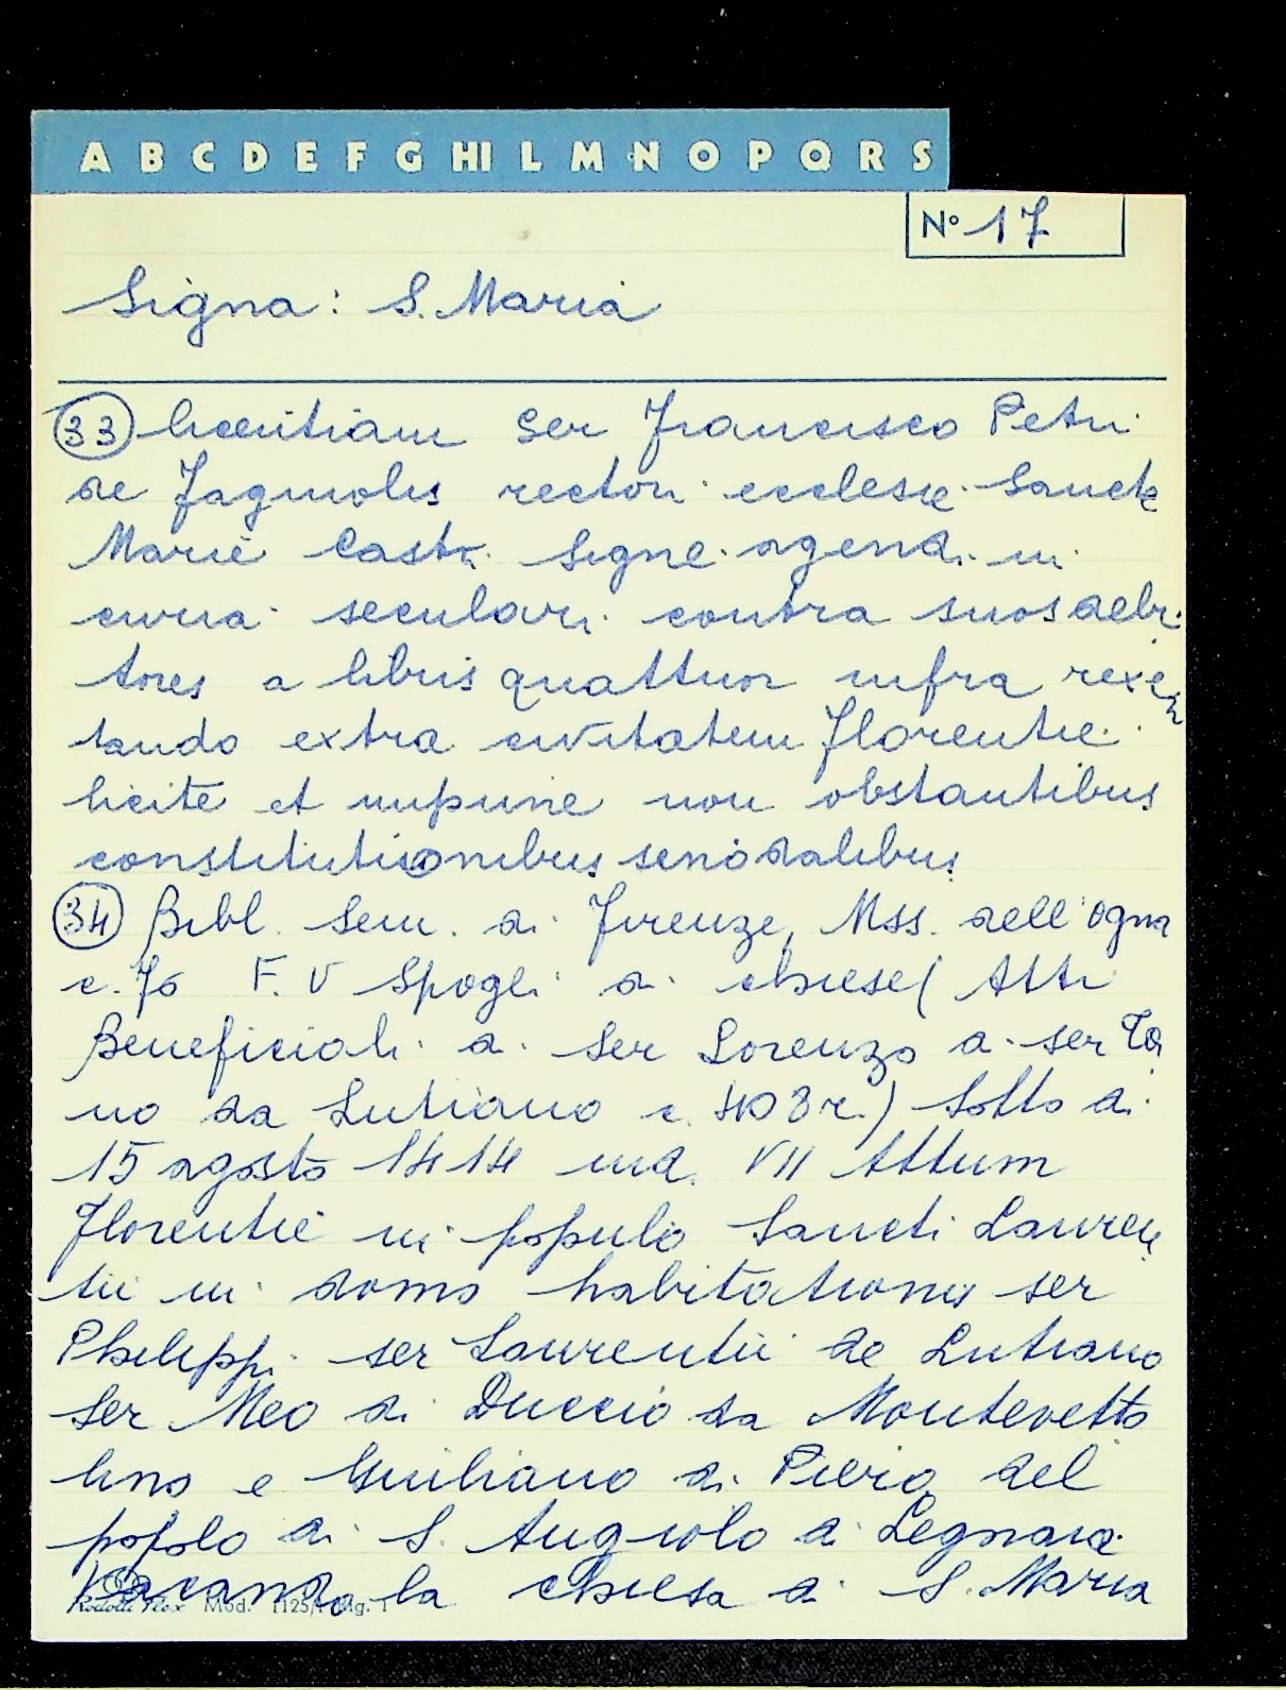 A B C D E F G HI L M N O P Q R S
N° 17
Signa: S. Maria
(33) licentiam Ser Francisco Petri
de Fagiuolis rectori ecclesie Sancte
Marie Castri Signe agendi in
curia seculari contra suos debi
tores a libris quattuor infra
tando extra civitatem Florentie
licite et impune non obstantibus
constitutionibus senodalibus
(34) Bibl. Sem. di Firenze, Mss. dell'Ogna
c. 70 F. V Spogli di chiese (Atti
Beneficiali di Ser Lorenzo di ser Ta
no da Lutiano c. 408 r.) Sotto di
15 agosto 1414 ind. VII Attum
Florentie in populo Sancti Lauren
tii in domo habitationis ser
Philippi ser Laurentii de Lutiano
Ser Meo di Duccio da Montevetto
lino e Giuliano di Piero del
popolo di S. Angiolo a Legnaia
Vacando la chiesa di S. Maria
Mod. 1125/1 Rig. 1